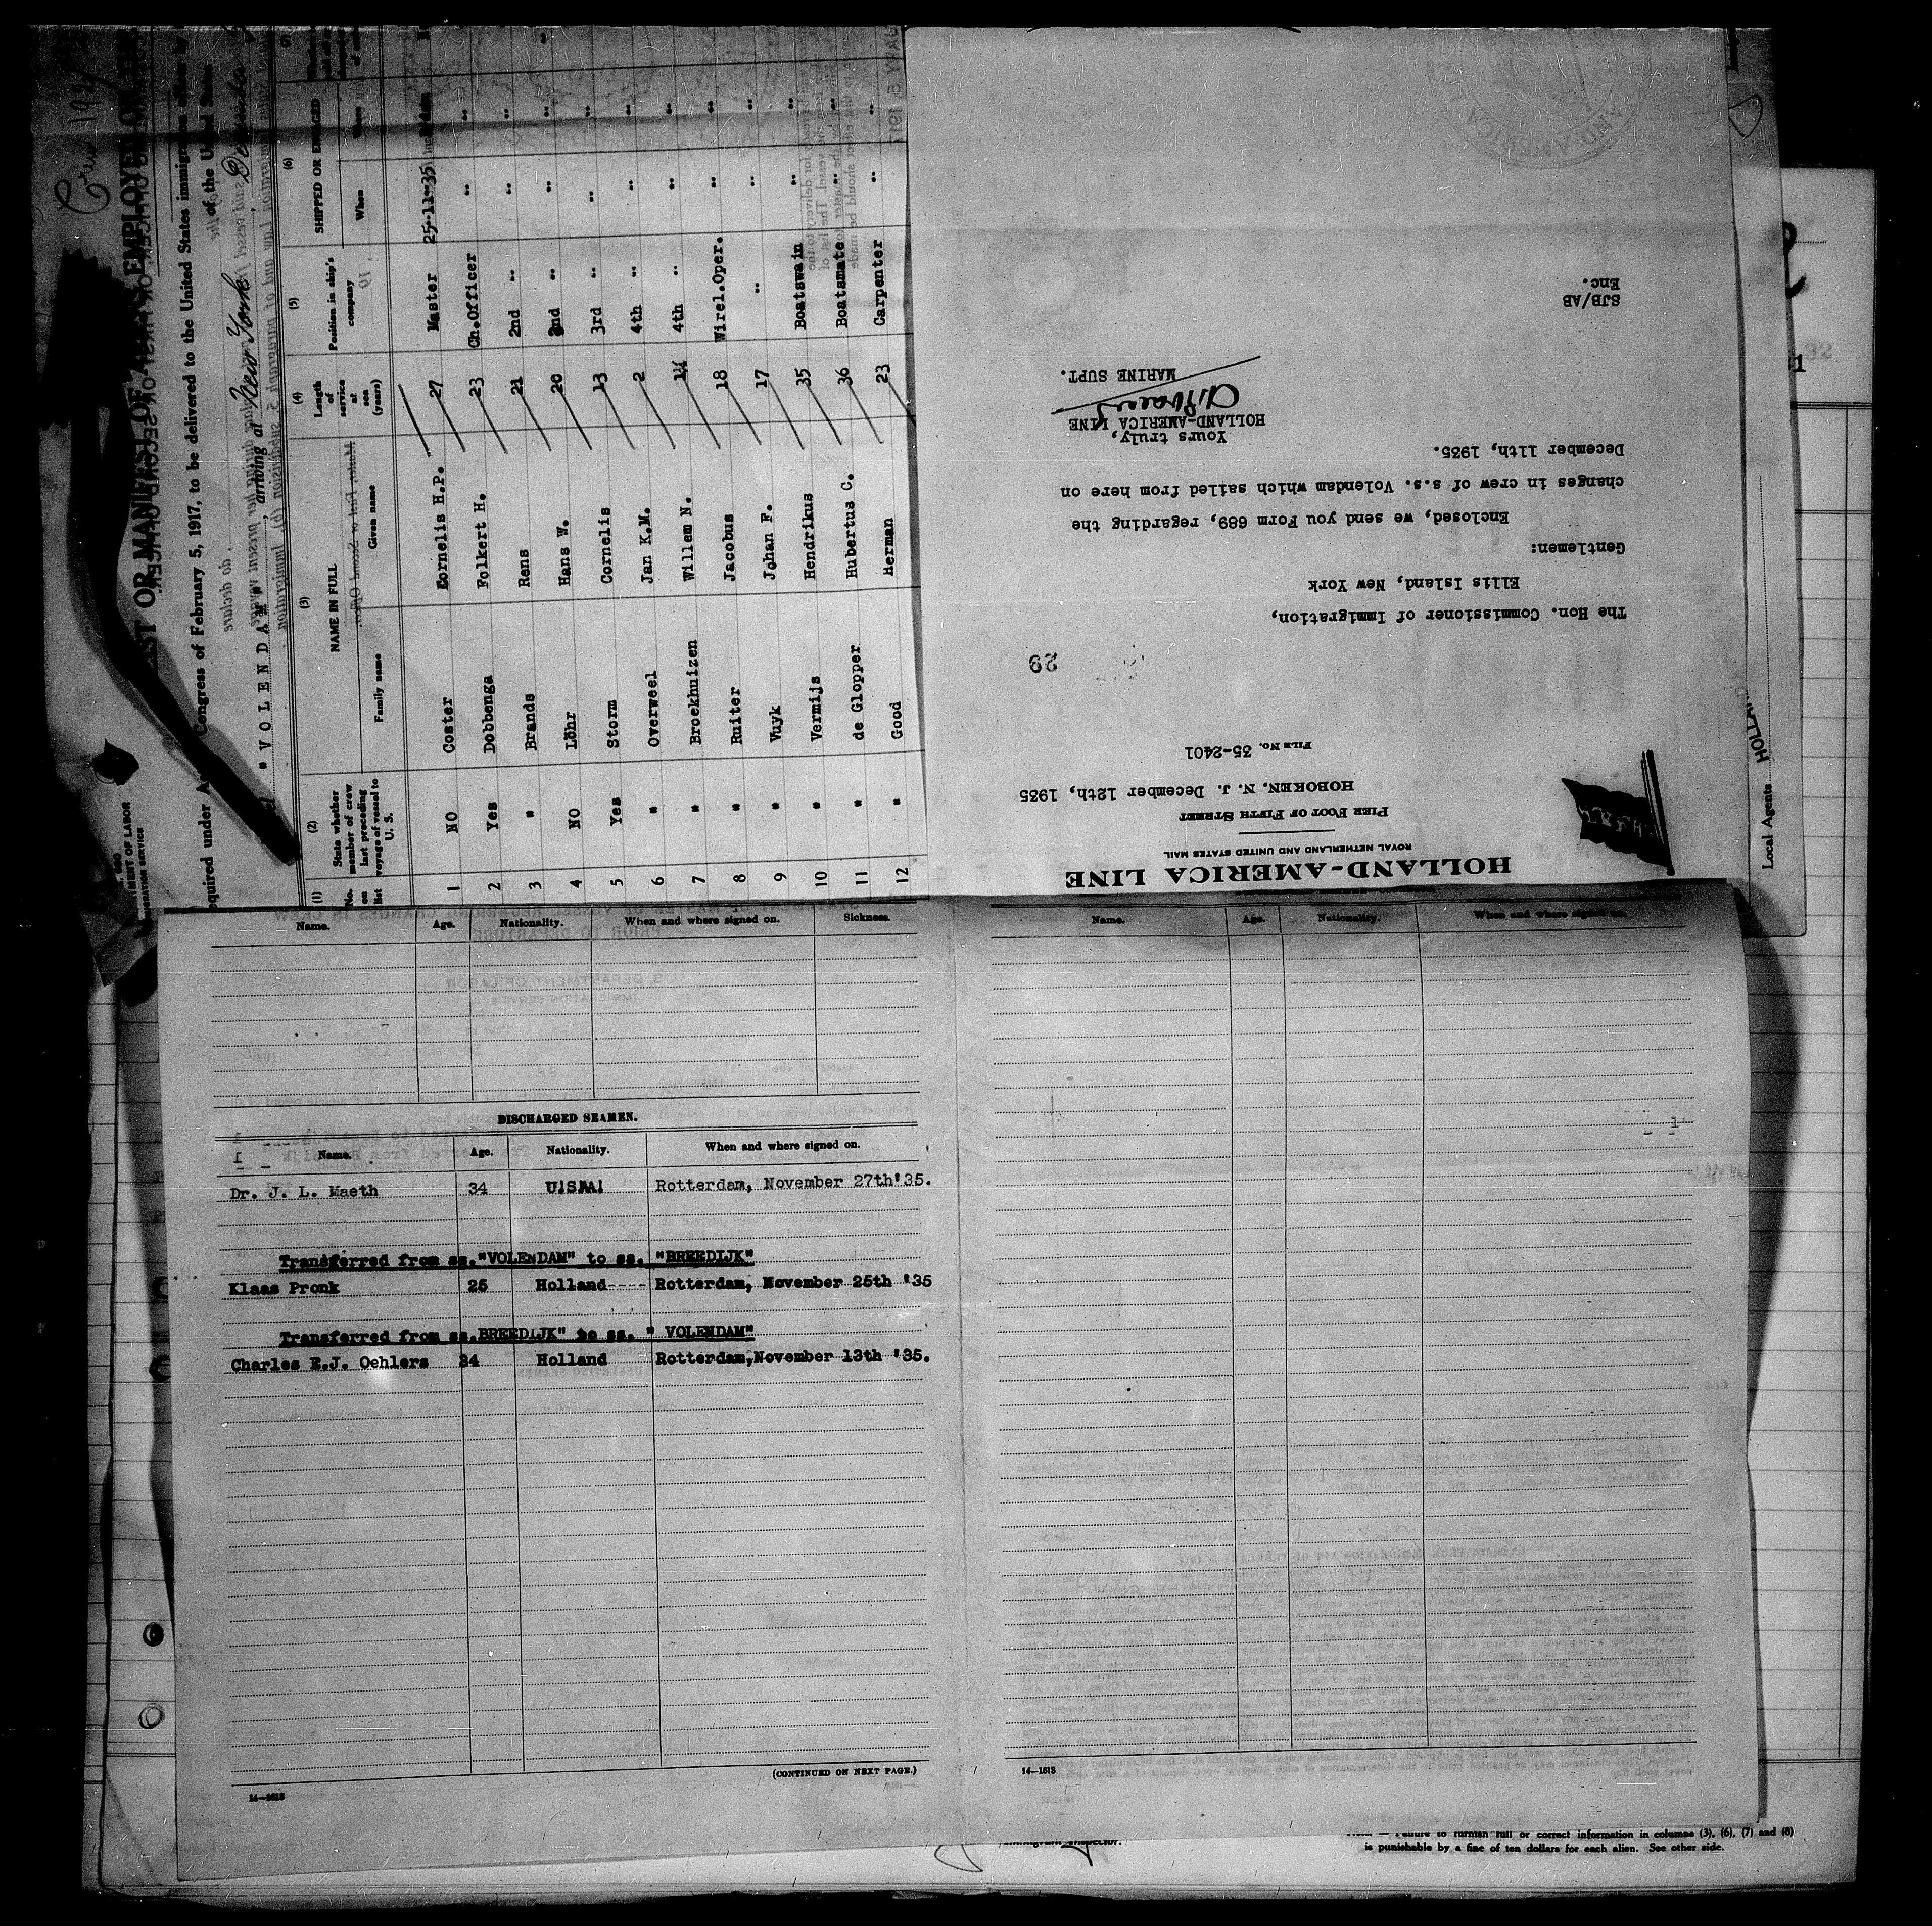 LIST OR MANIFEST OF ALIENS EMPLOYED ON
Required under Act of Congress of February 5, 1917, to be delivered to the United States immigration officer by
of the United States
"VOLENDAM", arriving at New York, December
(1) No. on list
(2) State whether member of crew last preceding voyage of vessel to U. S.
(3) NAME IN FULL
Family name Given name
(4) Length of service at sea (years)
(5) Position in ship's company
(6) SHIPPED OR ENGAGED
When Where
1 NO Coster Cornelis H.P. 27 Master 25-11-35
2 Yes Dobbenga Folkert H. 23 Ch.Officer " "
3 " Brands Rens 21 2nd " " "
4 NO Löhr Hans W. 20 2nd " " "
5 Yes Storm Cornelis 13 3rd " " "
6 " Overweel Jan K.M. 2 4th " " "
7 " Broekhuizen Willem N. 4th " " "
8 " Ruiter Jacobus 18 Wirel.Oper. " "
9 " Vuyk Johan F. 17 " " "
10 " Vermijs Hendrikus 35 Boatswain " "
11 " de Glopper Hubertus C. 36 Boatsmate " "
12 " Good Herman 23 Carpenter " "
HOLLAND-AMERICA LINE
ROYAL NETHERLAND AND UNITED STATES MAIL
PIER FOOT OF FIFTH STREET
HOBOKEN, N. J. December 12th, 1935
FILE NO. 35-2401
29
The Hon. Commissioner of Immigration,
Ellis Island, New York
Gentlemen:
Enclosed, we send you Form 689, regarding the
changes in crew of s.s. Volendam which sailed from here on
December 11th, 1935.
Yours truly,
HOLLAND-AMERICA LINE
MARINE SUPT.
SJB/AB
Enc.
Local Agents
Name. Age. Nationality. When and where signed on. Sickness.
DISCHARGED SEAMEN.
Name. Age. Nationality. When and where signed on.
Dr. J. L. Maeth 34 U.S.A. Rotterdam, November 27th'35.
Transferred from ss."VOLENDAM" to ss. "BREEDIJK"
Klaas Pronk 25 Holland---- Rotterdam, November 25th '35
Transferred from ss.BREEDIJK" to ss. " VOLENDAM"
Charles E.J. Oehlers 34 Holland Rotterdam,November 13th '35.
(CONTINUED ON NEXT PAGE.)
14—1613
Name. Age. Nationality. When and where signed on.
14—1613
Immigrant Inspector.
Failure to furnish full or correct information in columns (3), (6), (7) and (8)
is punishable by a fine of ten dollars for each alien. See other side.